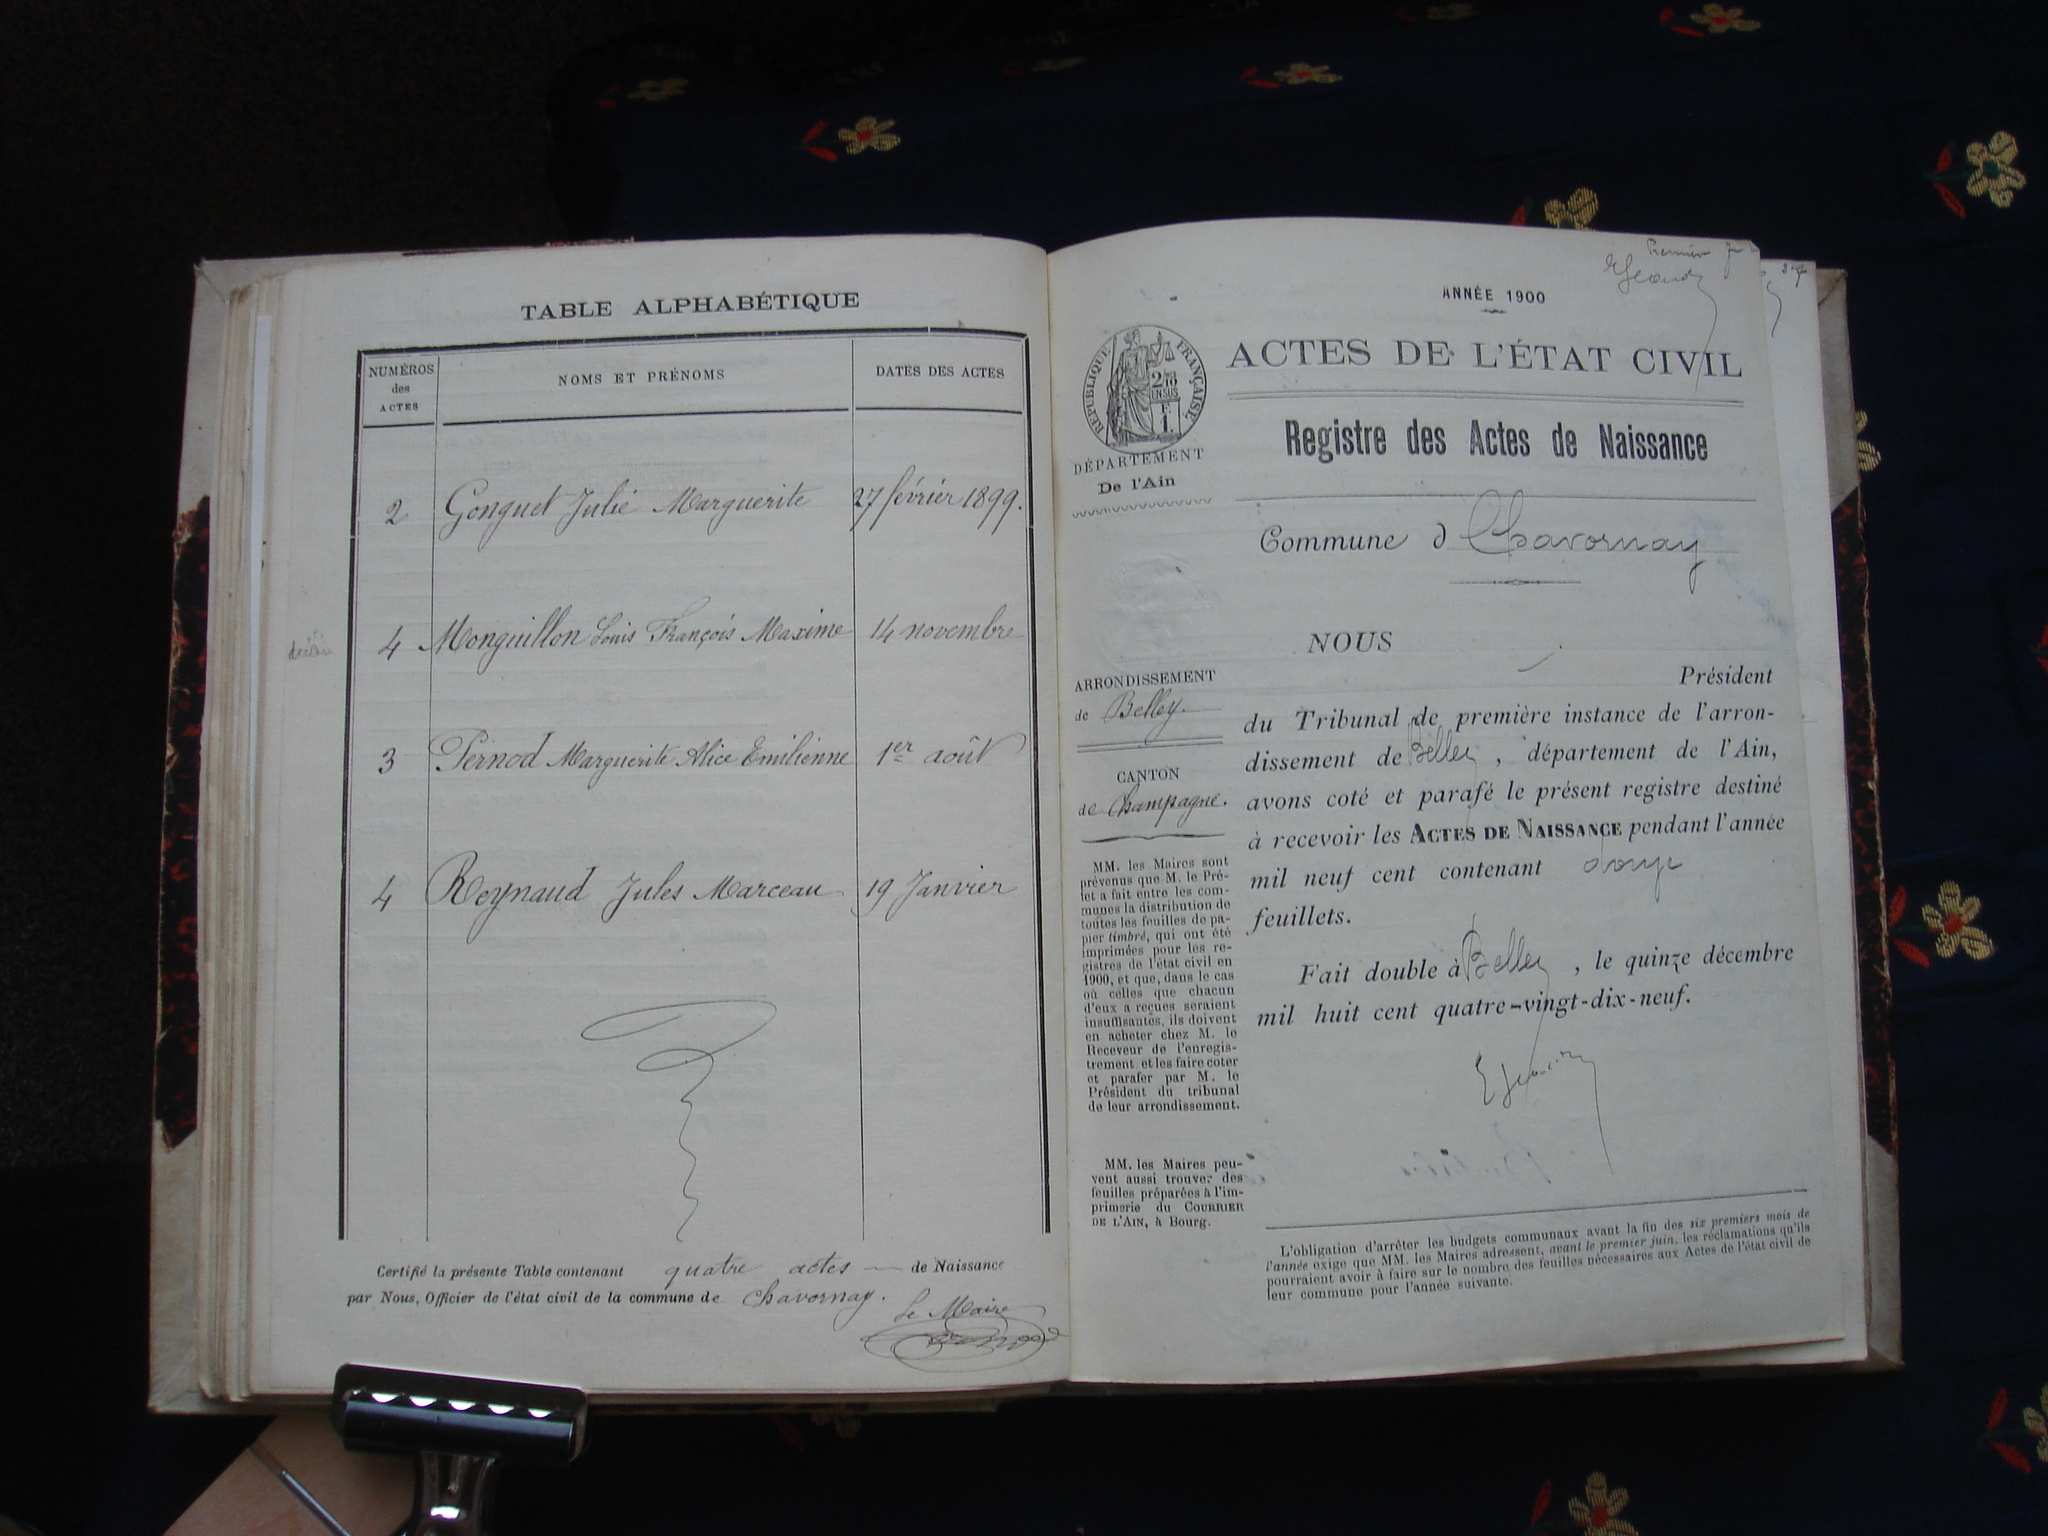 TABLE ALPHABÉTIQUE
NUMÉROS
des
ACTES
NOMS ET PRÉNOMS
DATES DES ACTES
2 Gonguet Julie Marguerite 27 février 1899.
4 Monguillon Louis François Maxime 14 novembre
3 Pernod Marguerite Alice Emilienne 1er août
4 Reynaud Jules Marceau 19 Janvier
Certifié la présente Table contenant quatre actes de Naissance
par Nous, Officier de l'état civil de la commune de Chavornay.
Le Maire
Premier
ANNÉE 1900
RÉPUBLIQUE FRANÇAISE
ACTES DE L'ÉTAT CIVIL
Registre des Actes de Naissance
DÉPARTEMENT
De l'Ain
Commune d Chavornay
NOUS
Président
ARRONDISSEMENT
de Belley.
CANTON
de Champagne.
du Tribunal de première instance de l'arron-
dissement de Belley, département de l'Ain,
avons coté et parafé le présent registre destiné
à recevoir les ACTES DE NAISSANCE pendant l'année
mil neuf cent contenant douze
feuillets.
Fait double à Belley, le quinze décembre
mil huit cent quatre-vingt-dix-neuf.
MM. les Maires sont
prévenus que M. le Pré-
fet a fait entre les com-
munes la distribution de
toutes les feuilles de pa-
pier timbré, qui ont été
imprimées pour les re-
gistres de l'état civil en
1900, et que, dans le cas
où celles que chacun
d'eux a reçues seraient
insuffisantes, ils doivent
en acheter chez M. le
Receveur de l'enregis-
trement et les faire coter
et parafer par M. le
Président du tribunal
de leur arrondissement.
MM. les Maires peu-
vent aussi trouver des
feuilles préparées à l'im-
primerie du COURRIER
DE L'AIN, à Bourg.
L'obligation d'arrêter les budgets communaux avant la fin des six premiers mois de
l'année exige que MM. les Maires adressent, avant le premier juin, les réclamations qu'ils
pourraient avoir à faire sur le nombre des feuilles nécessaires aux Actes de l'état civil de
leur commune pour l'année suivante.